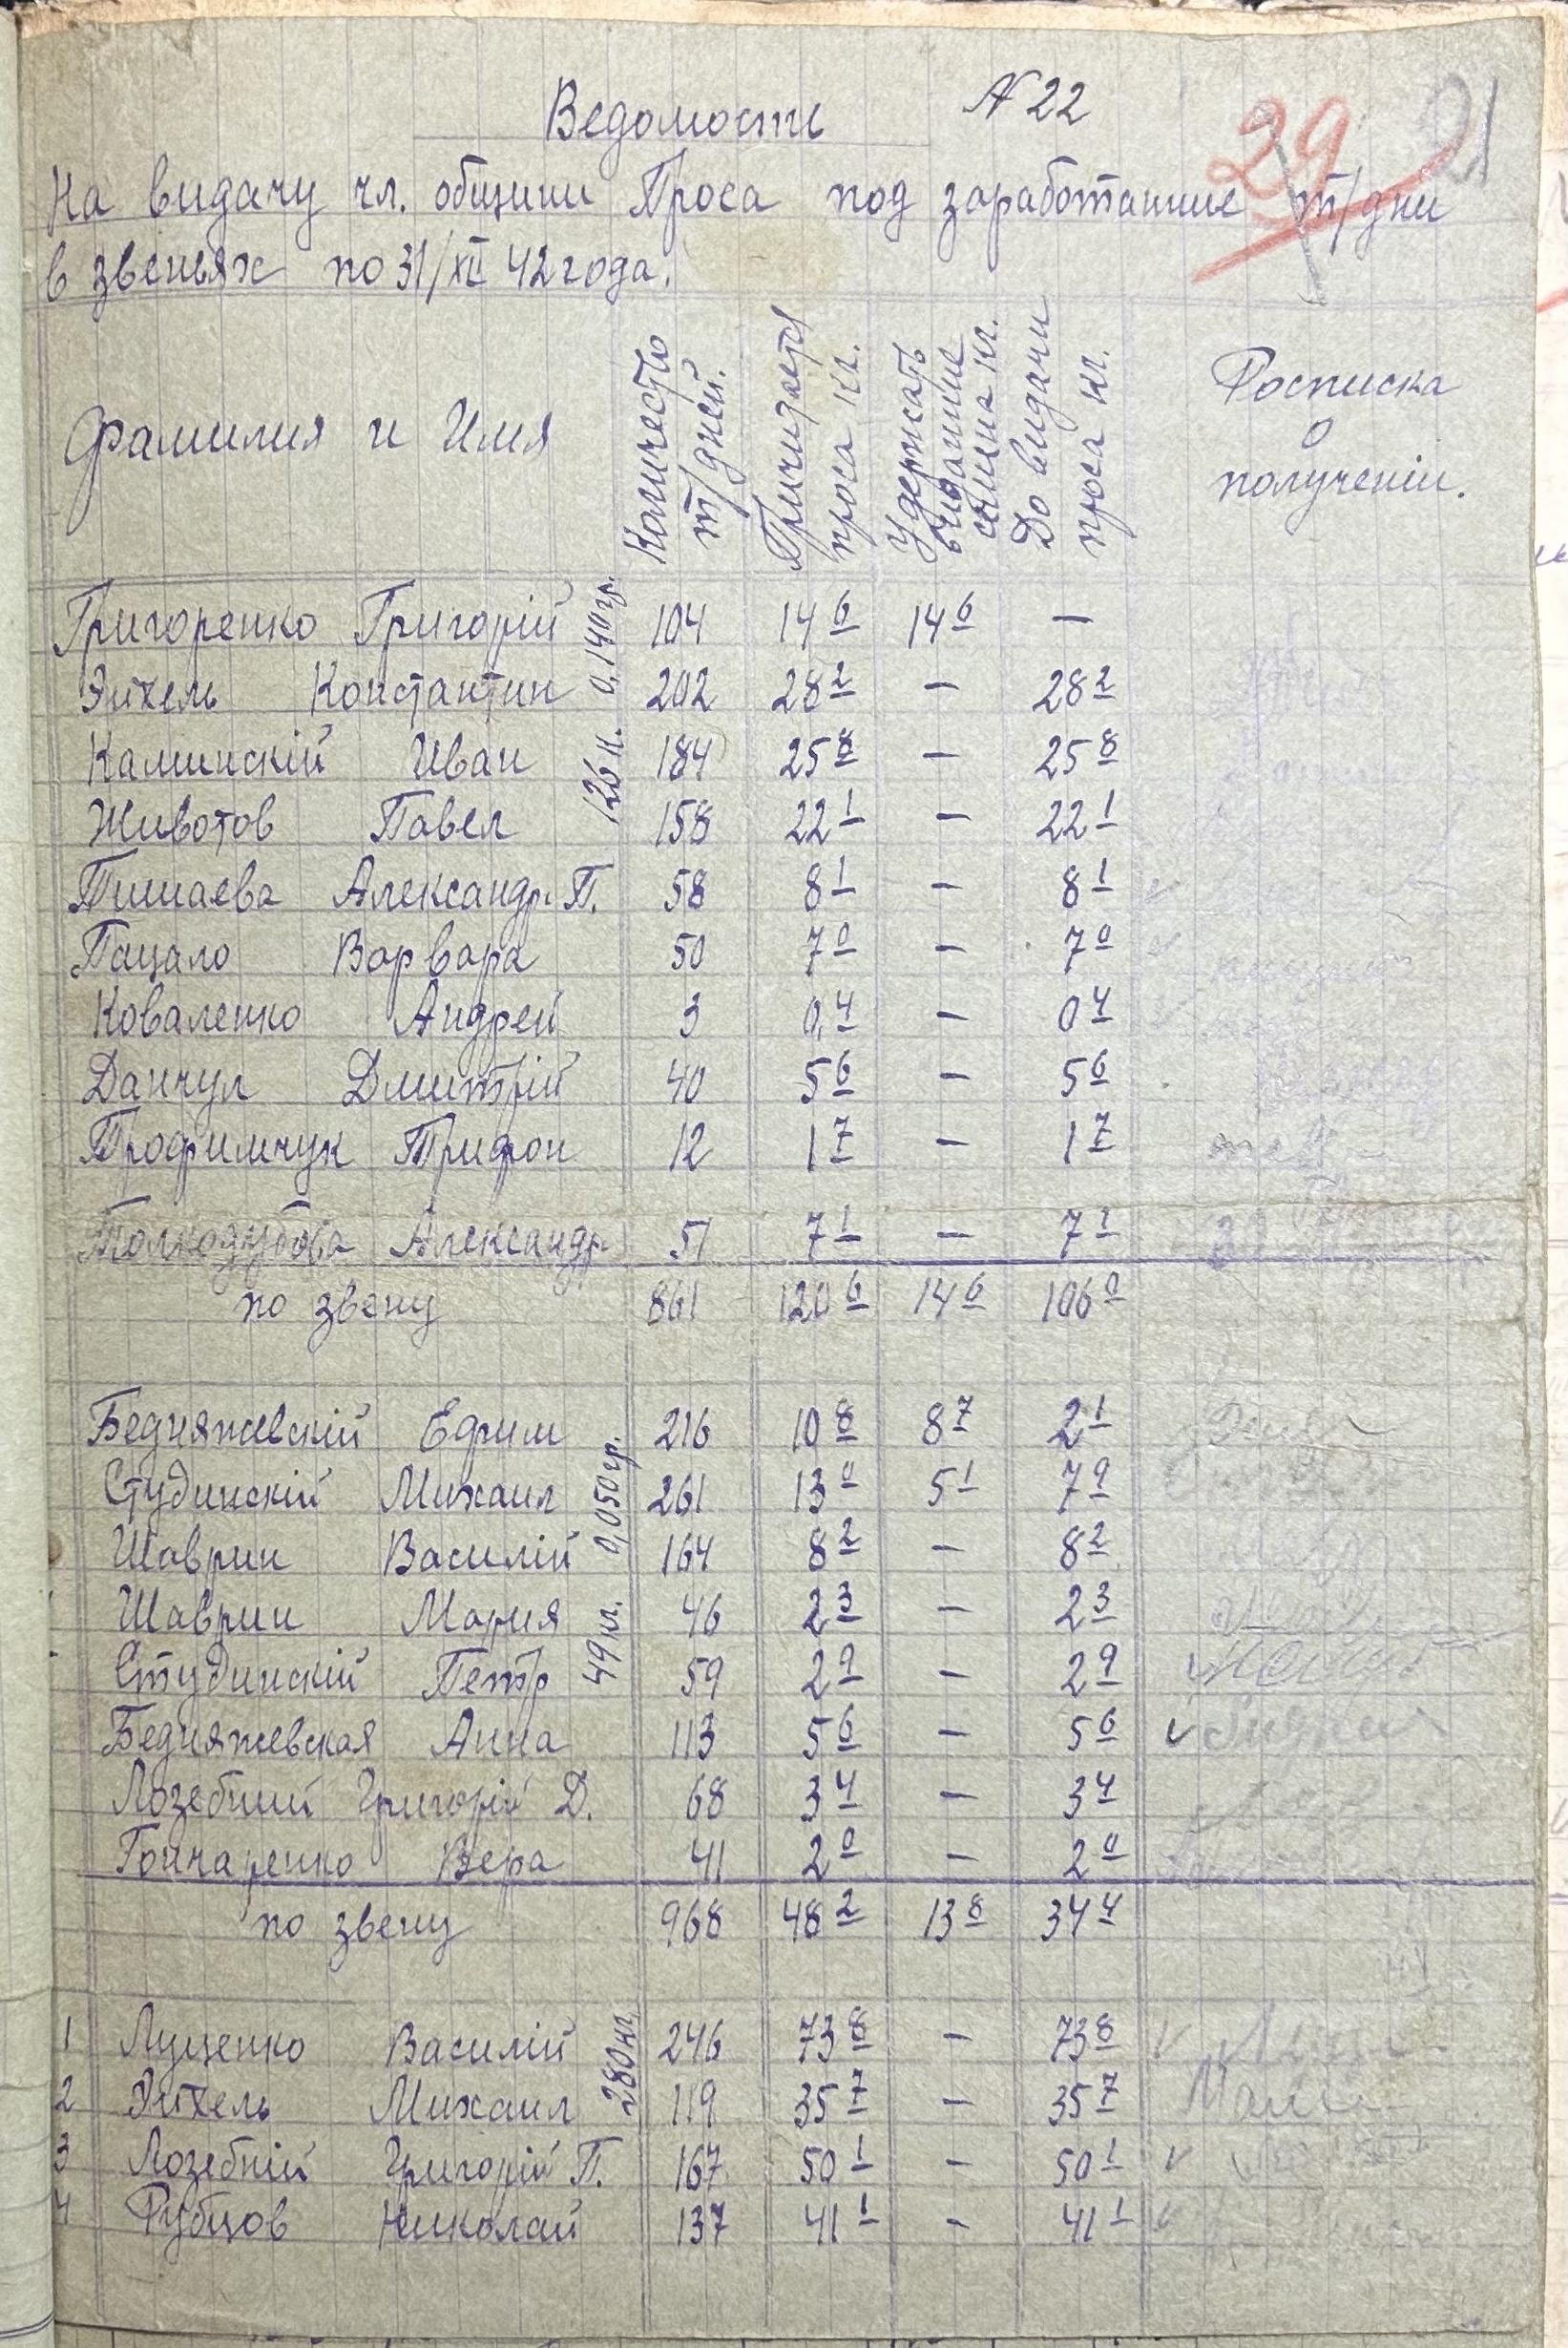 Ведомость N 22
29 21
На видачу чл. общини Проса под заработанние т/дни
в звеньях по 31/XII 42 года.
Фамилия и Имя
Количество т/дней.
Причитаетс проса кг.
Удержать видание семена кг.
До видачи проса кг.
Росписка
о
получениi.
0,140 гр.
126 к.
Григоренко Григорій 104 14 6 14 6 —
Эйхель Константин 202 28 2 — 28 2
Каминскій Иван 184 25 8 — 25 8
Животов Павел 158 22 1 — 22 1
Тимаева Александр. П. 58 8 1 — 8 1
Пацало Варвара 50 7 0 — 7 0
Коваленко Андрей 3 0,4 — 0 4
Данчул Дмитрій 40 5 6 — 5 6
Трофимчук Трифон 12 1 7 — 1 7
Толкодубова Александр 51 7 1 — 7 1
по звену 861 120 6 14 6 106 0
0,050 гр.
49 кг.
Бедняжевскій Ефим 216 10 8 8 7 2 1
Студинскій Михаил 261 13 0 5 1 7 9
Шаврин Василій 164 8 2 — 8 2
Шаврин Мария 46 2 3 — 2 3
Студинскій Петр 59 2 9 — 2 9
Бедняжевская Анна 113 5 6 — 5 6
Лозебний Григорій Д. 68 3 4 — 3 4
Гончаренко Вера 41 2 0 — 2 0
по звену 968 48 2 13 8 34 4
280 кг.
1 Луценко Василій 246 73 8 — 73 8
2 Эйхель Михаил 119 35 7 — 35 7
3 Лозебній Григорій П. 167 50 1 — 50 1
4 Рубцов Николай 137 41 1 - 41 1